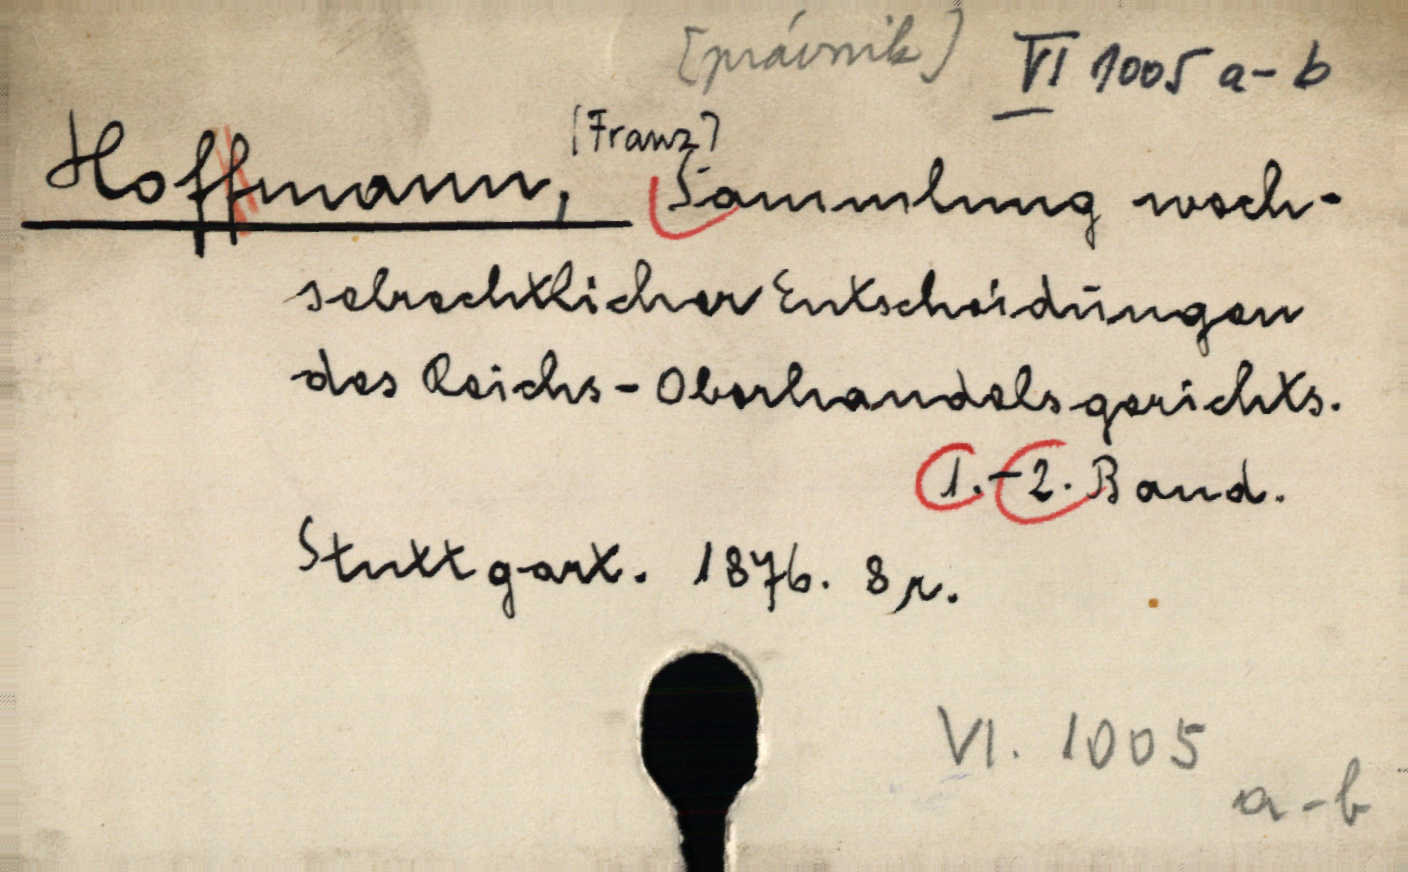 [právnik] VI 1005 a-b
[Franz]
Hoffmann, Sammlung wech-
selrechtlicher Entscheidungen
des Reichs-Oberhandelsgerichts.
1.-2. Band.
Stuttgart. 1876. 8r.
VI. 1005
a-b